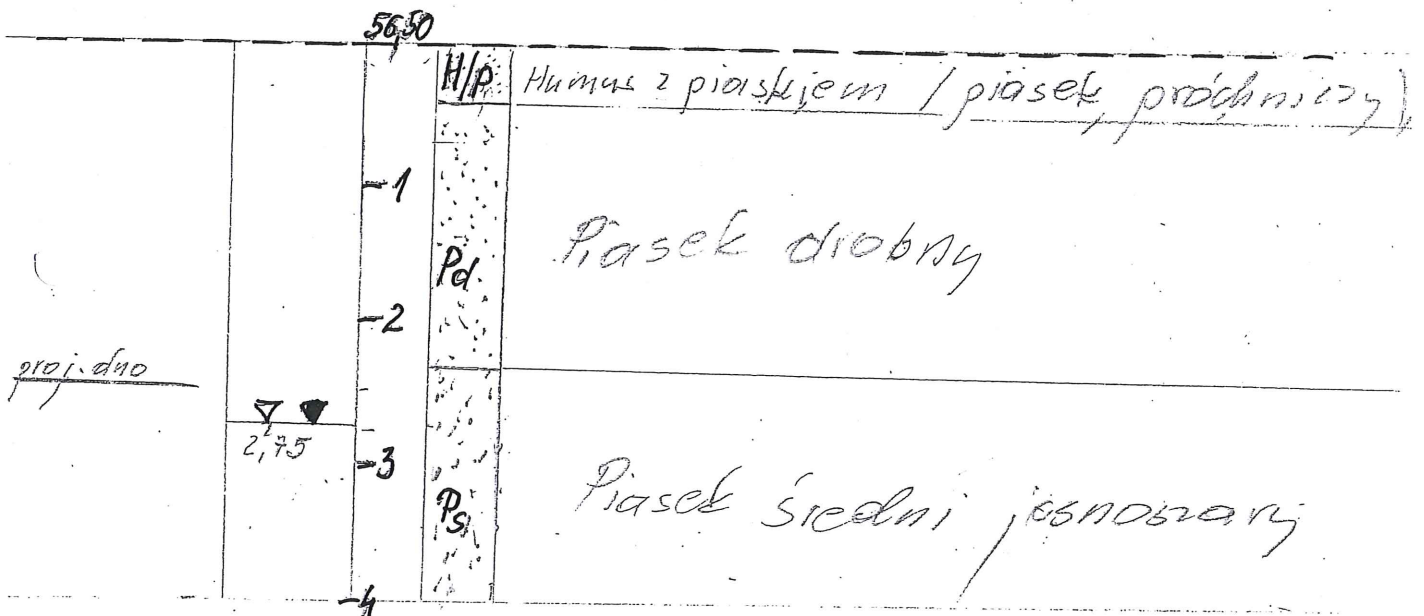 56,50
H/p Humus z piaskiem / piasek próchniczy)
-1
Piasek drobny
Pd
-2
proj. dno
2,75
-3
Piasek średni jasnoszary
Ps
-4